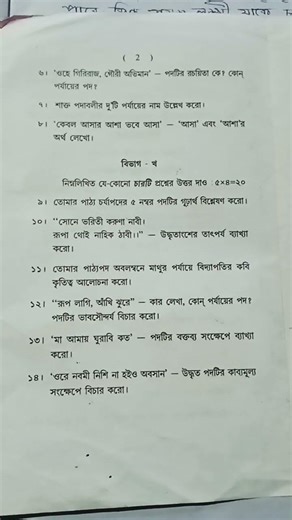 ( 2 )
৬। 'ওহে গিরিরাজ, গৌরী অভিমান' — পদটির রচয়িতা কে? কোন্
পর্যায়ের পদ?
৭। শাক্ত পদাবলীর দু'টি পর্যায়ের নাম উল্লেখ করো।
৮। 'কেবল আসার আশা ভবে আসা' — 'আসা' এবং 'আশা'র
অর্থ লেখো।
বিভাগ - খ
নিম্নলিখিত যে-কোনো চারটি প্রশ্নের উত্তর দাও : ৫×৪=২০
৯। তোমার পাঠ্য চর্যাপদের ৫ নম্বর পদটির গূঢ়ার্থ বিশ্লেষণ করো।
১০। "সোনে ভরিতী করুণা নাবী।
রূপা থোই নাহিক ঠাবী।।" — উদ্ধৃতাংশের তাৎপর্য ব্যাখ্যা
করো।
১১। তোমার পাঠ্যপদ অবলম্বনে মাথুর পর্যায়ে বিদ্যাপতির কবি
কৃতিত্ব আলোচনা করো।
১২। "রূপ লাগি, আঁখি ঝুরে" — কার লেখা, কোন্ পর্যায়ের পদ?
পদটির ভাবসৌন্দর্য বিচার করো।
১৩। 'মা আমায় ঘুরাবি কত' — পদটির বক্তব্য সংক্ষেপে ব্যাখ্যা
করো।
১৪। 'ওরে নবমী নিশি না হইও অবসান' — উদ্ধৃত পদটির কাব্যমূল্য
সংক্ষেপে বিচার করো।